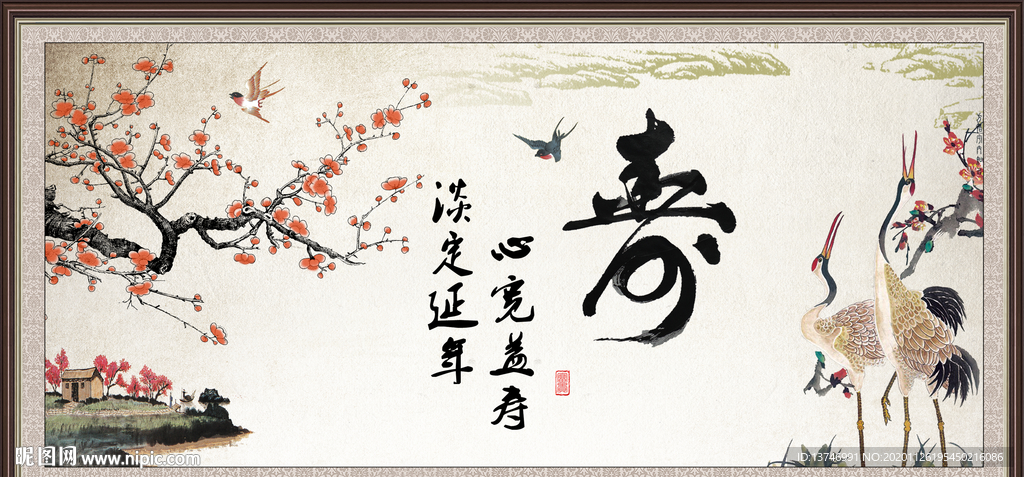 寿
心宽益寿
淡定延年
昵图网 www.nipic.com
ID:13746991 NO:20201126195450216086